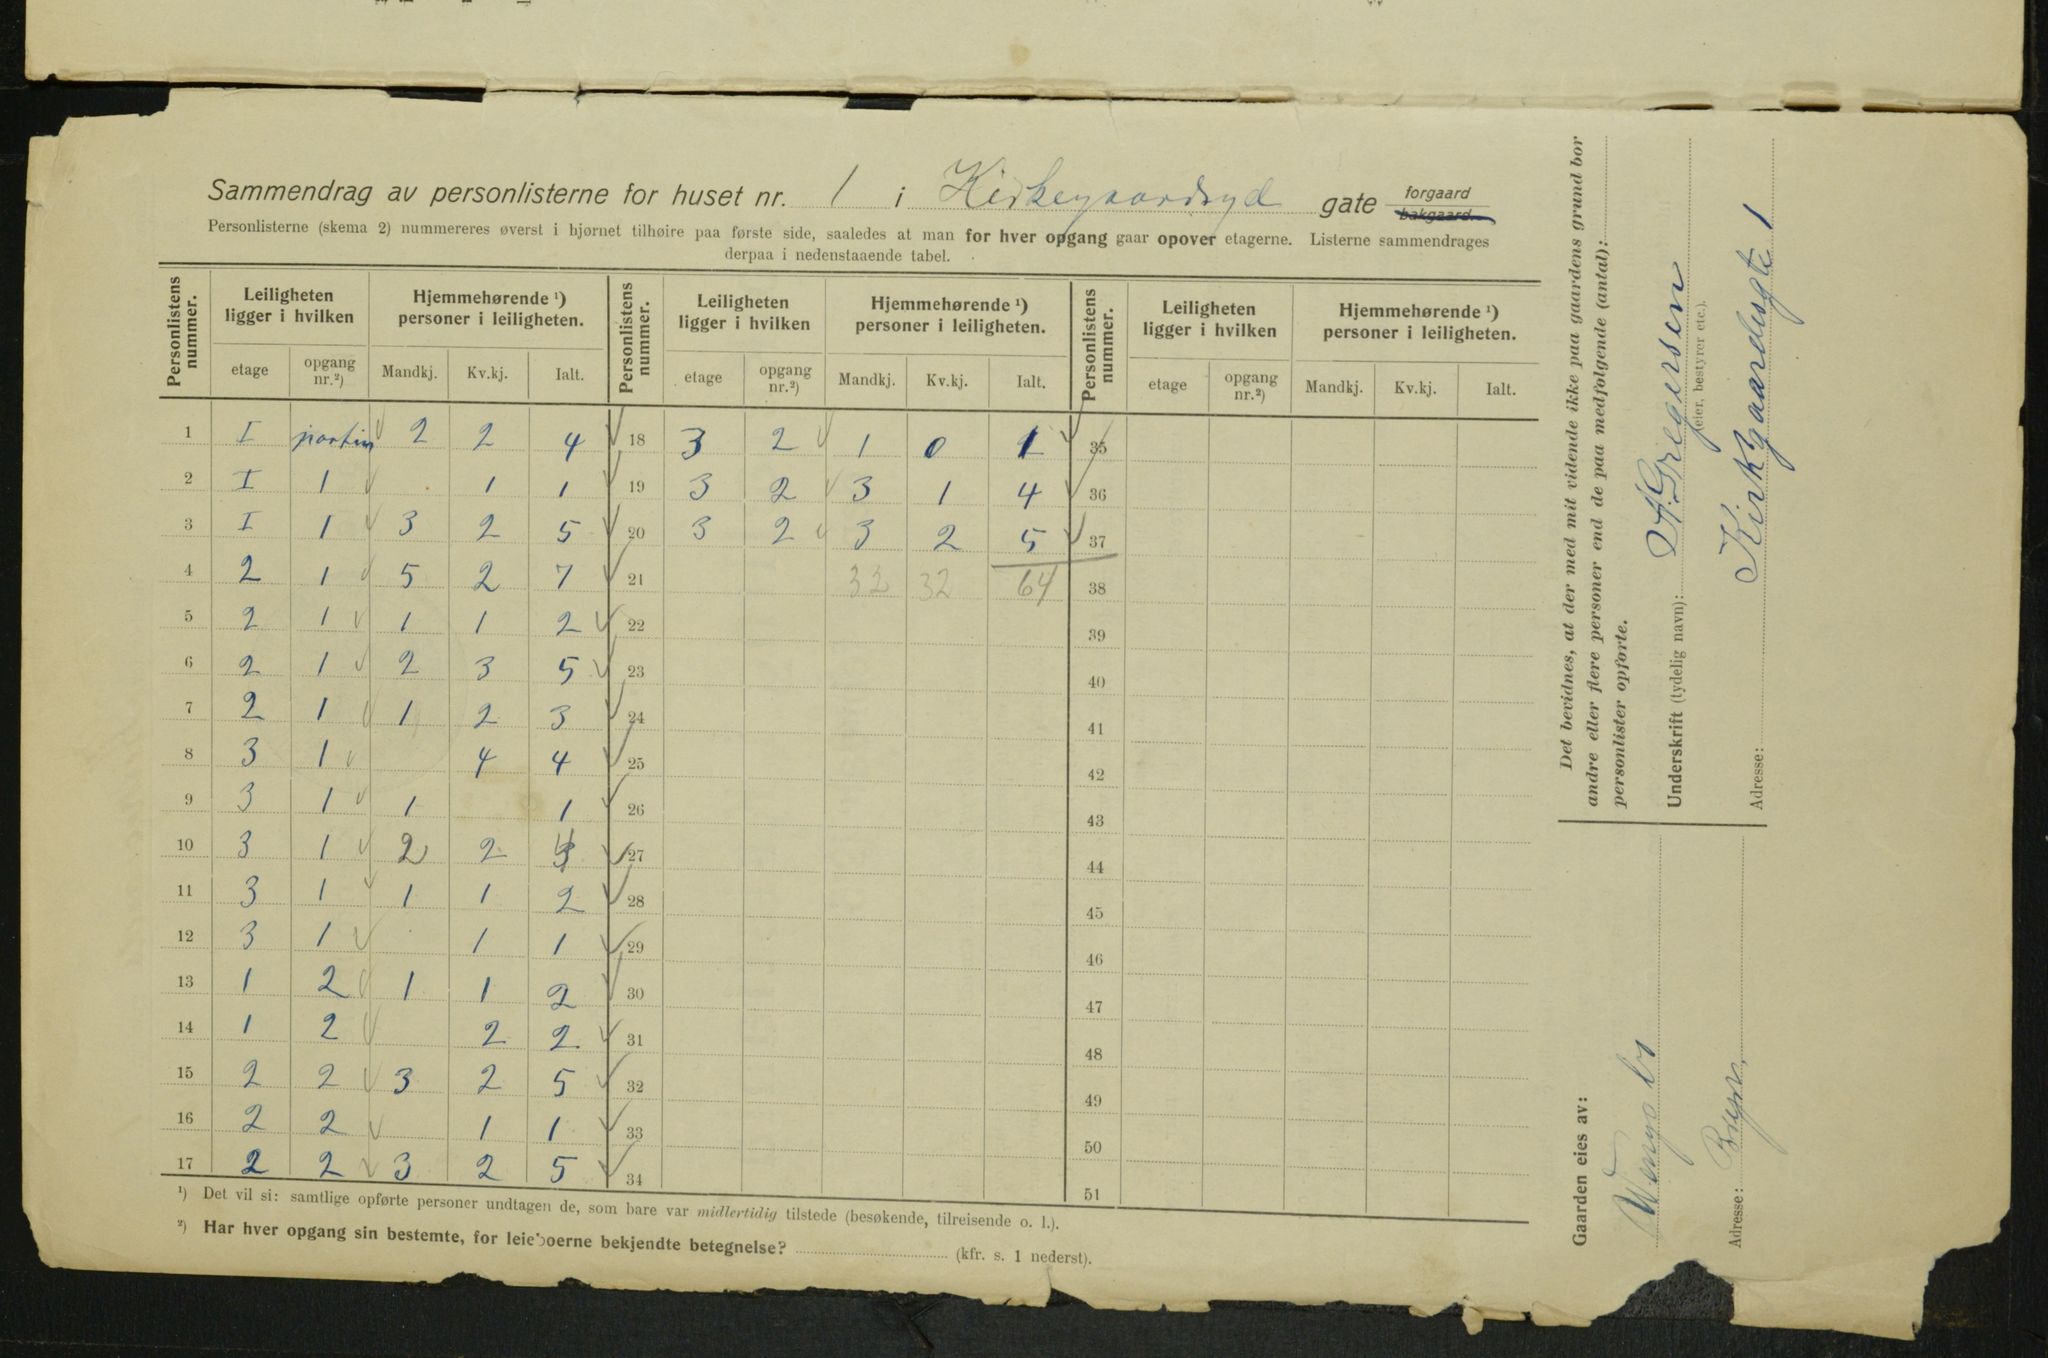 Sammendrag av personlisterne for huset nr. 1 i Kirkegaardsgd gate forgaard bakgaard.
Personlisterne (skema 2) nummereres øverst i hjørnet tilhøire paa første side, saaledes at man for hver opgang gaar opover etagerne. Listerne sammendrages
derpaa i nedenstaaende tabel.
Personlistens nummer. Leiligheten ligger i hvilken Hjemmehørende ¹) personer i leiligheten. Personlistens nummer. Leiligheten ligger i hvilken Hjemmehørende ¹) personer i leiligheten. Personlistens nummer. Leiligheten ligger i hvilken Hjemmehørende ¹) personer i leiligheten.
etage opgang nr.²) Mandkj. Kv.kj. Ialt. etage opgang nr.²) Mandkj. Kv.kj. Ialt. etage opgang nr.²) Mandkj. Kv.kj. Ialt.
1 I 2 2 4 18 3 2 1 0 1 35
2 I 1 1 1 19 3 2 3 1 4 36
3 I 1 3 2 5 20 3 2 3 2 5 37
4 2 1 5 2 7 21 32 32 64 38
5 2 1 1 1 2 22 39
6 2 1 2 3 5 23 40
7 2 1 1 2 3 24 41
8 3 1 4 4 25 42
9 3 1 1 1 26 43
10 3 1 2 2 4 27 44
11 3 1 1 1 2 28 45
12 3 1 1 1 29 46
13 1 2 1 1 2 30 47
14 1 2 2 2 31 48
15 2 2 3 2 5 32 49
16 2 2 1 1 33 50
17 2 2 3 2 5 34 51
¹) Det vil si: samtlige opførte personer undtagen de, som bare var midlertidig tilstede (besøkende, tilreisende o. l.).
²) Har hver opgang sin bestemte, for leieboerne bekjendte betegnelse? (kfr. s. 1 nederst).
Det bevidnes, at der med mit vidende ikke paa gaardens grund bor
andre eller flere personer end de paa medfølgende (antal):
personlister opførte.
Underskrift (tydelig navn): A. Gregersen
(eier, bestyrer etc.).
Adresse: Kirkgaardsgt 1
Gaarden eies av:
Adresse: